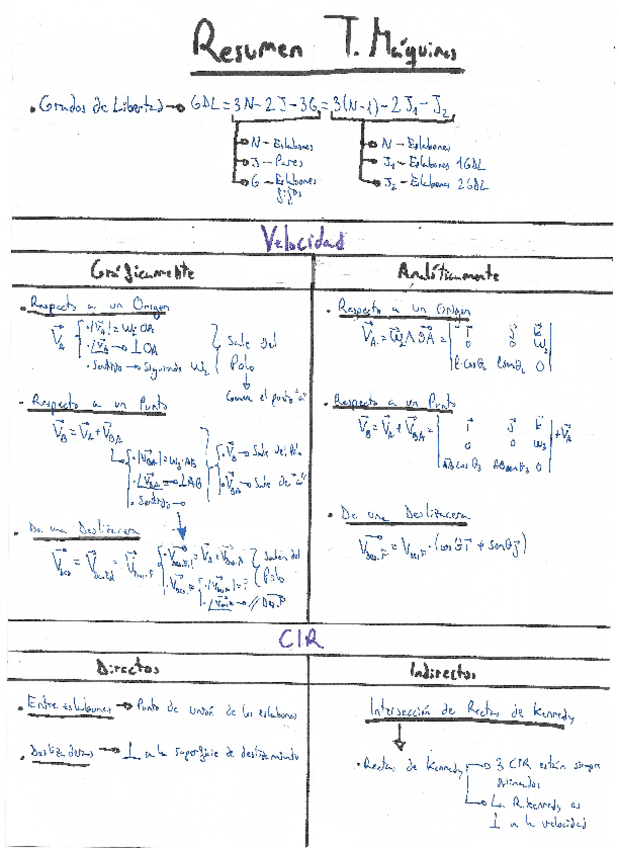 Resumen T. Máquinas
• Grados de Libertad → GDL = 3N - 2J - 3G = 3(N-1) - 2J₁ - J₂
→ N - Eslabones
→ J - Pares
→ G - Eslabones fijos
→ N - Eslabones
→ J₁ - Eslabones 1GDL
→ J₂ - Eslabones 2GDL
Velocidad
Gráficamente
• Respecto a un Origen
V⃗A { • |V⃗A| = ω₂·OA
• ∠V⃗A → ⊥ OA
• Sentido → Siguiendo ω₂
} Sale del Polo
↓
• Respecto a un Punto
V⃗B = V⃗A + V⃗BA
• |V⃗BA| = ω₃·AB
• ∠V⃗BA → ⊥ AB
• Sentido →
• V⃗B → Sale del Polo
• V⃗BA → Sale de "a"
• De una Deslizadera
} Salen del Polo
Analíticamente
• Respecto a un Origen
V⃗A = ω⃗₂ ∧ = | i⃗ j⃗ k⃗
0 0 ω₂
l·cosθ₂ l·senθ₂ 0 |
• Respecto a un Punto
V⃗B = V⃗A + V⃗BA = | i⃗ j⃗ k⃗
0 0 ω₃
AB cosθ₃ AB senθ₃ 0 | + V⃗A
• De una Deslizadera
·(cosθ i⃗ + senθ j⃗)
CIR
Directos
• Entre eslabones → Punto de unión de los eslabones
• Deslizaderas → ⊥ a la superficie de deslizamiento
Indirectos
Intersección de Rectas de Kennedy
↓
• Rectas de Kennedy → 3 CIR están siempre alineados
→ La R. Kennedy es ⊥ a la velocidad